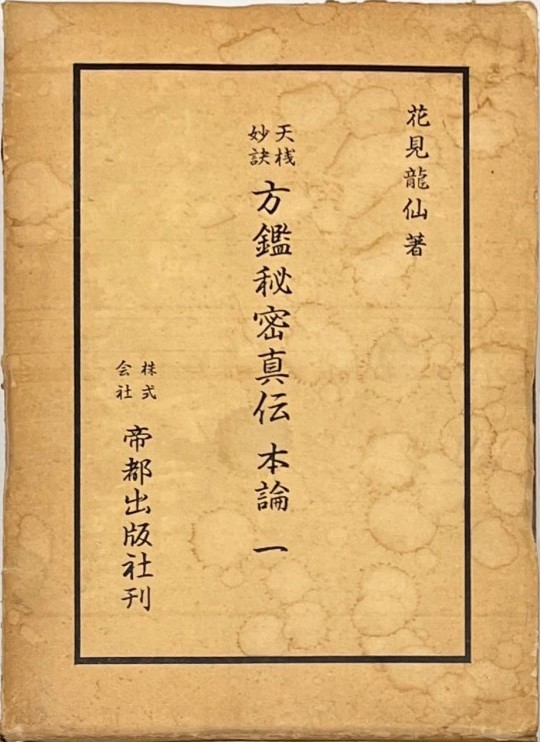 花見龍仙 著
天棧妙訣 方鑑秘密真伝 本論 一
株式会社 帝都出版社刊